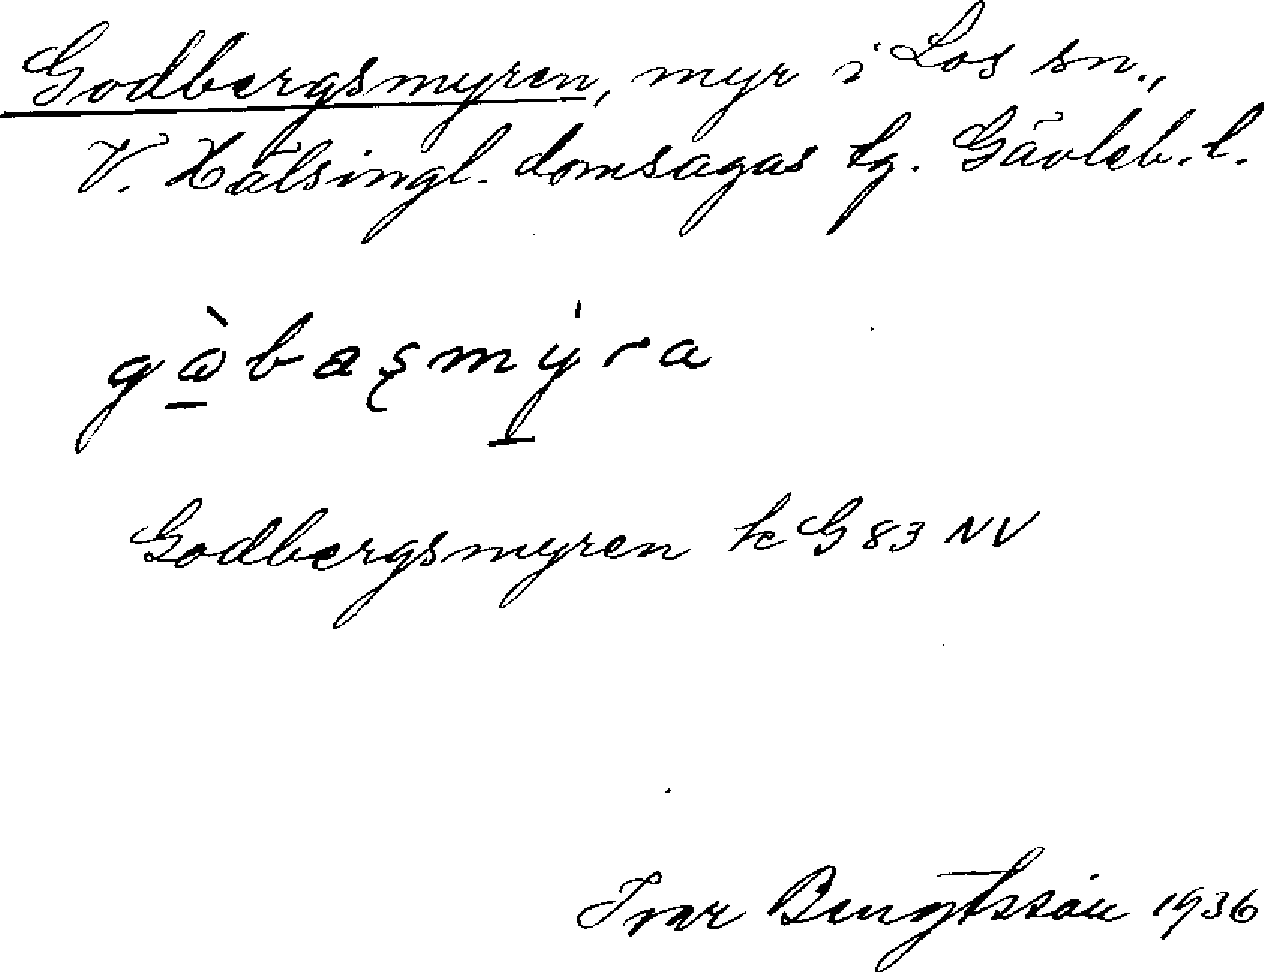 Godbergsmyren, myr i Los sn.,
V. Hälsingl. domsagas tg. Gävleb. l.
gòbaʂmýra
Godbergsmyren k G 83 NV
Ivar Bengtsson 1936